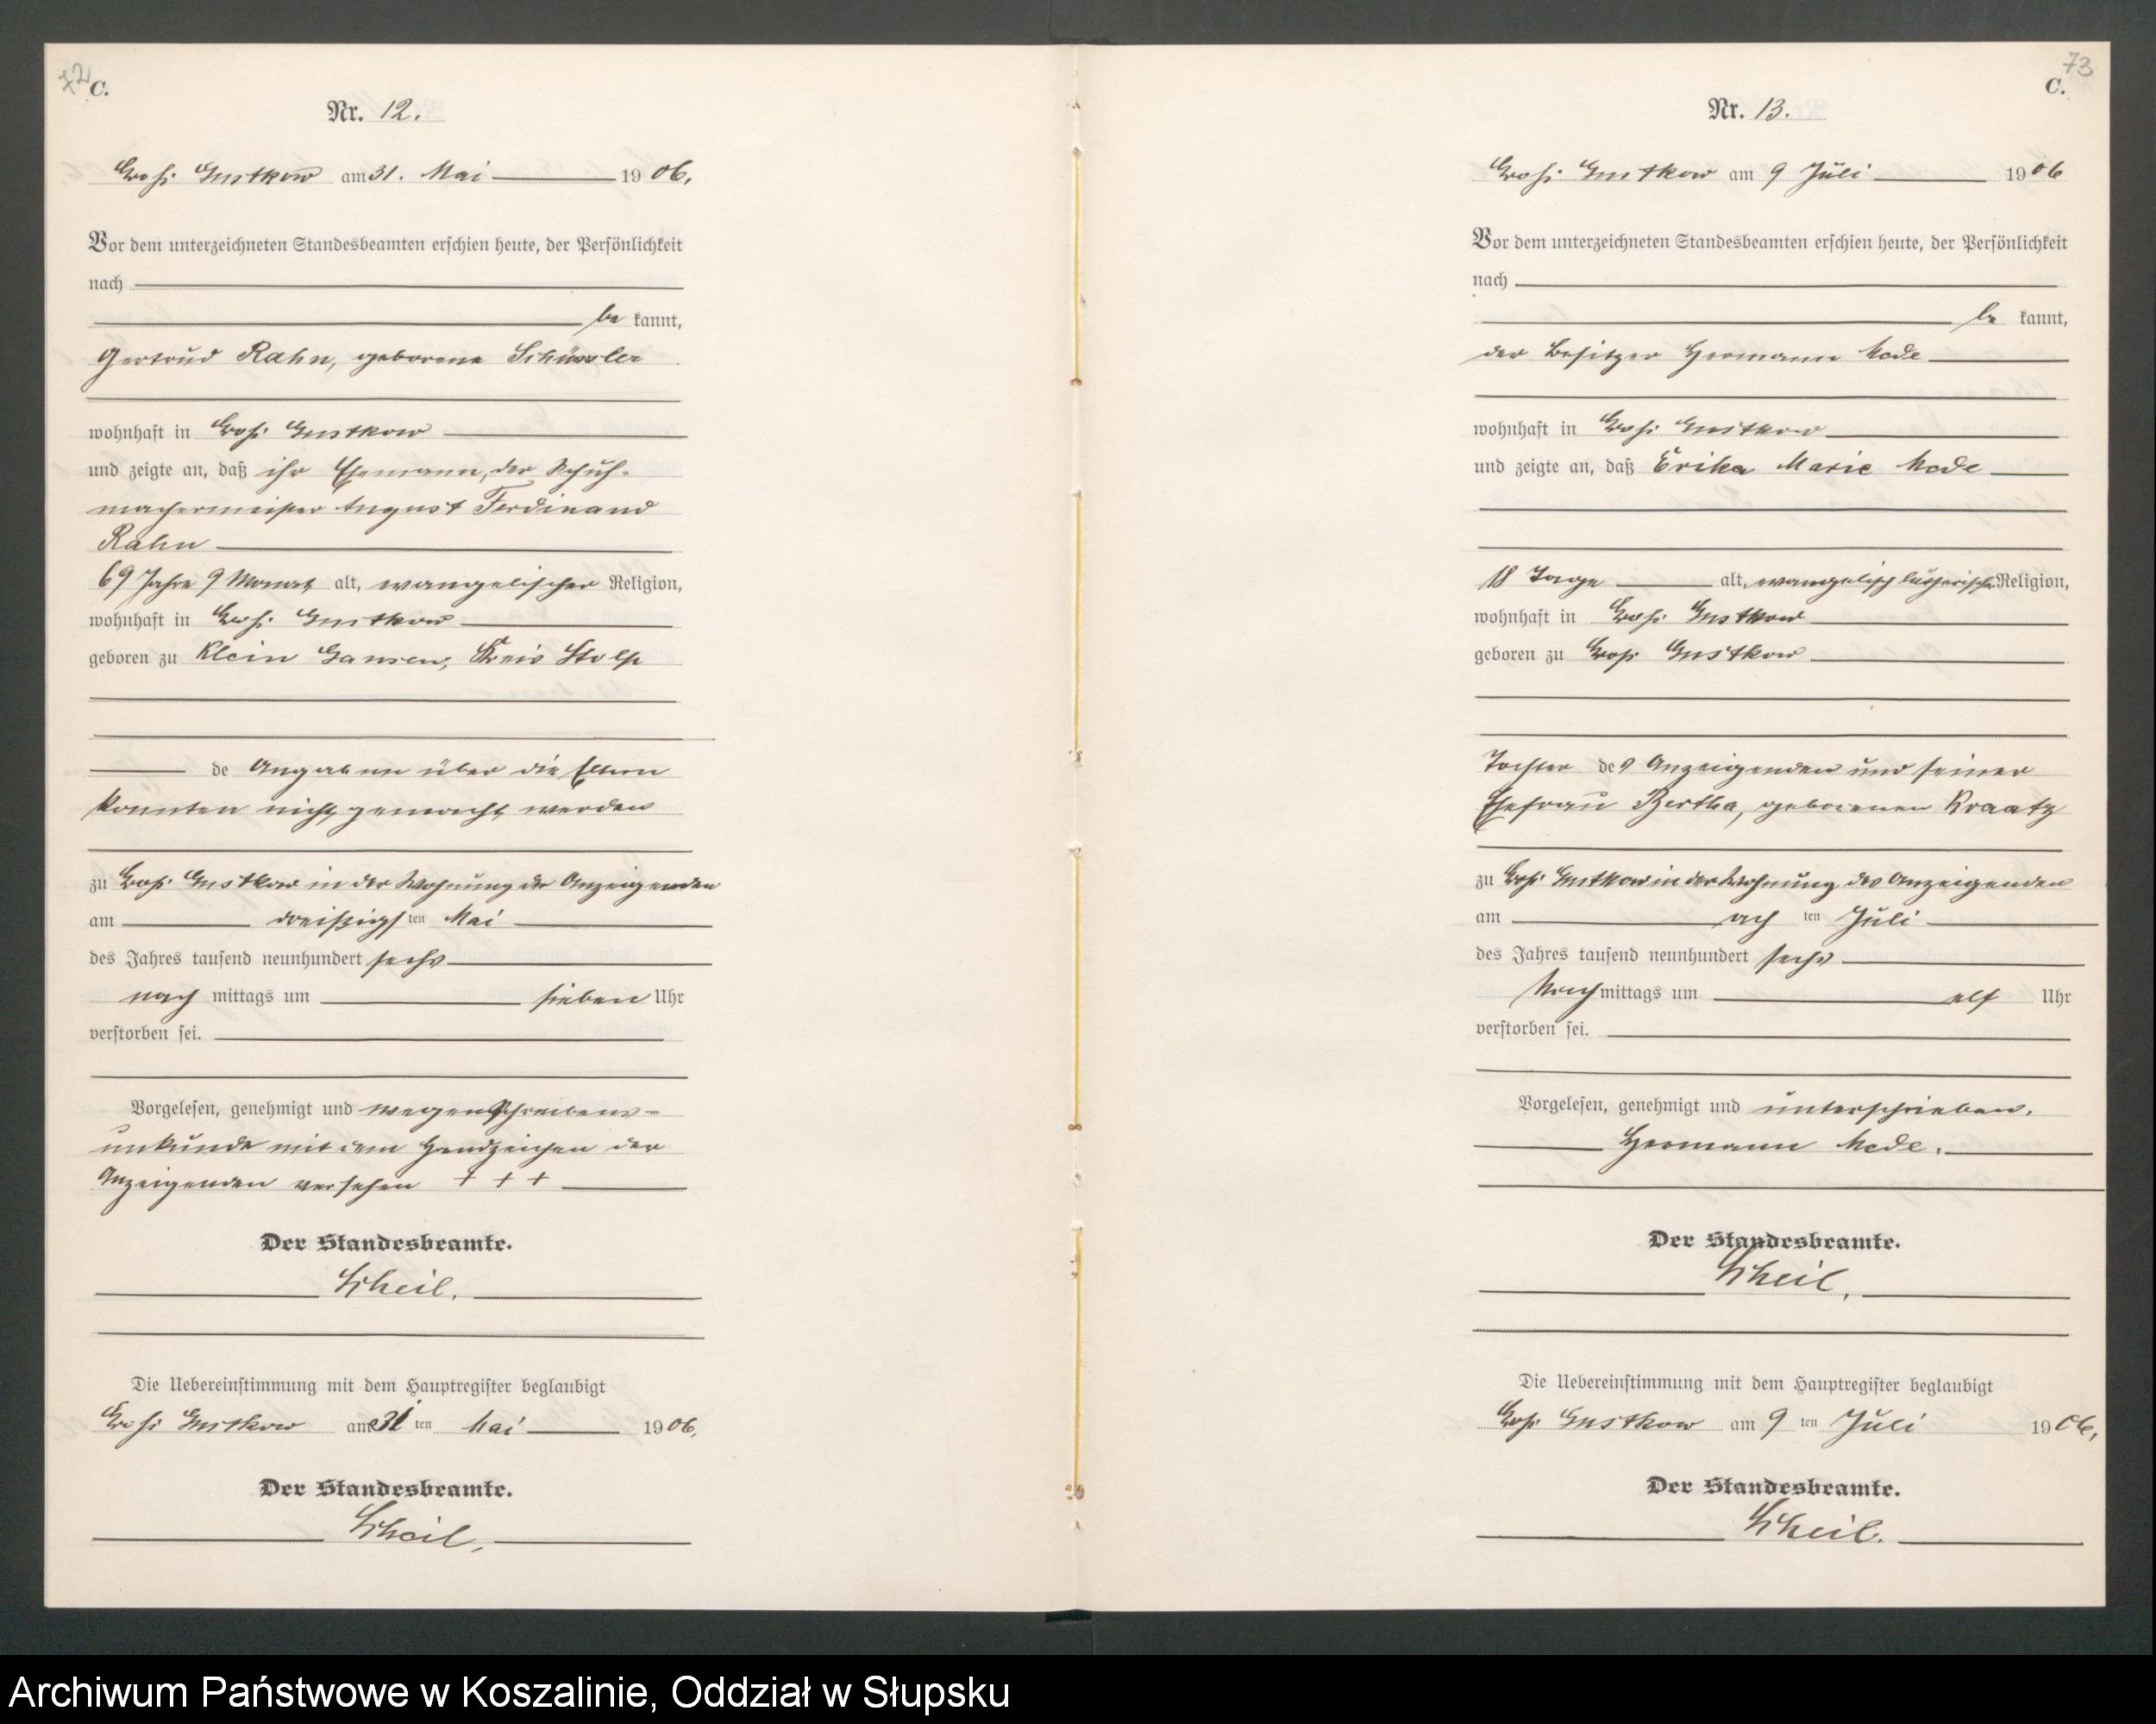 72 C.
Nr. 12.
Groß Gustkow am 31. Mai 1906,
Vor dem unterzeichneten Standesbeamten erschien heute, der Persönlichkeit
nach
be kannt,
Gertrud Rahn, geborene Schüssler
wohnhaft in Groß Gustkow
und zeigte an, daß ihr Ehemann, der Schuh-
machermeister August Ferdinand
Rahn
69 Jahre 9 Monat alt, evangelischer Religion,
wohnhaft in Groß Gustkow
geboren zu Klein Gansen, Kreis Stolp
de Angaben über die Eltern
konnten nicht gemacht werden
zu Groß Gustkow in der Wohnung der Anzeigenden
am dreißigsten Mai
des Jahres tausend neunhundert sechs
nach mittags um sieben Uhr
verstorben sei.
Vorgelesen, genehmigt und wegen Schreibens-
unkunde mit dem Handzeichen der
Anzeigenden versehen + + +
Der Standesbeamte.
Scheil.
Die Uebereinstimmung mit dem Hauptregister beglaubigt
Groß Gustkow am 31 ten Mai 1906.
Der Standesbeamte.
Scheil.
73
C.
Nr. 13.
Groß Gustkow am 9 Juli 1906
Vor dem unterzeichneten Standesbeamten erschien heute, der Persönlichkeit
nach
be kannt,
der Besitzer Hermann Mode
wohnhaft in Groß Gustkow
und zeigte an, daß Erika Marie Mode
18 Tage alt, evangelisch lutherischer Religion,
wohnhaft in Groß Gustkow
geboren zu Groß Gustkow
Tochter des Anzeigenden und seiner
Ehefrau Bertha, geborenen Kraatz
zu Groß Gustkow in der Wohnung des Anzeigenden
am ach ten Juli
des Jahres tausend neunhundert sechs
Nach mittags um elf Uhr
verstorben sei.
Vorgelesen, genehmigt und unterschrieben.
Hermann Mode.
Der Standesbeamte.
Scheil.
Die Uebereinstimmung mit dem Hauptregister beglaubigt
Groß Gustkow am 9 ten Juli 1906.
Der Standesbeamte.
Scheil.
Archiwum Państwowe w Koszalinie, Oddział w Słupsku